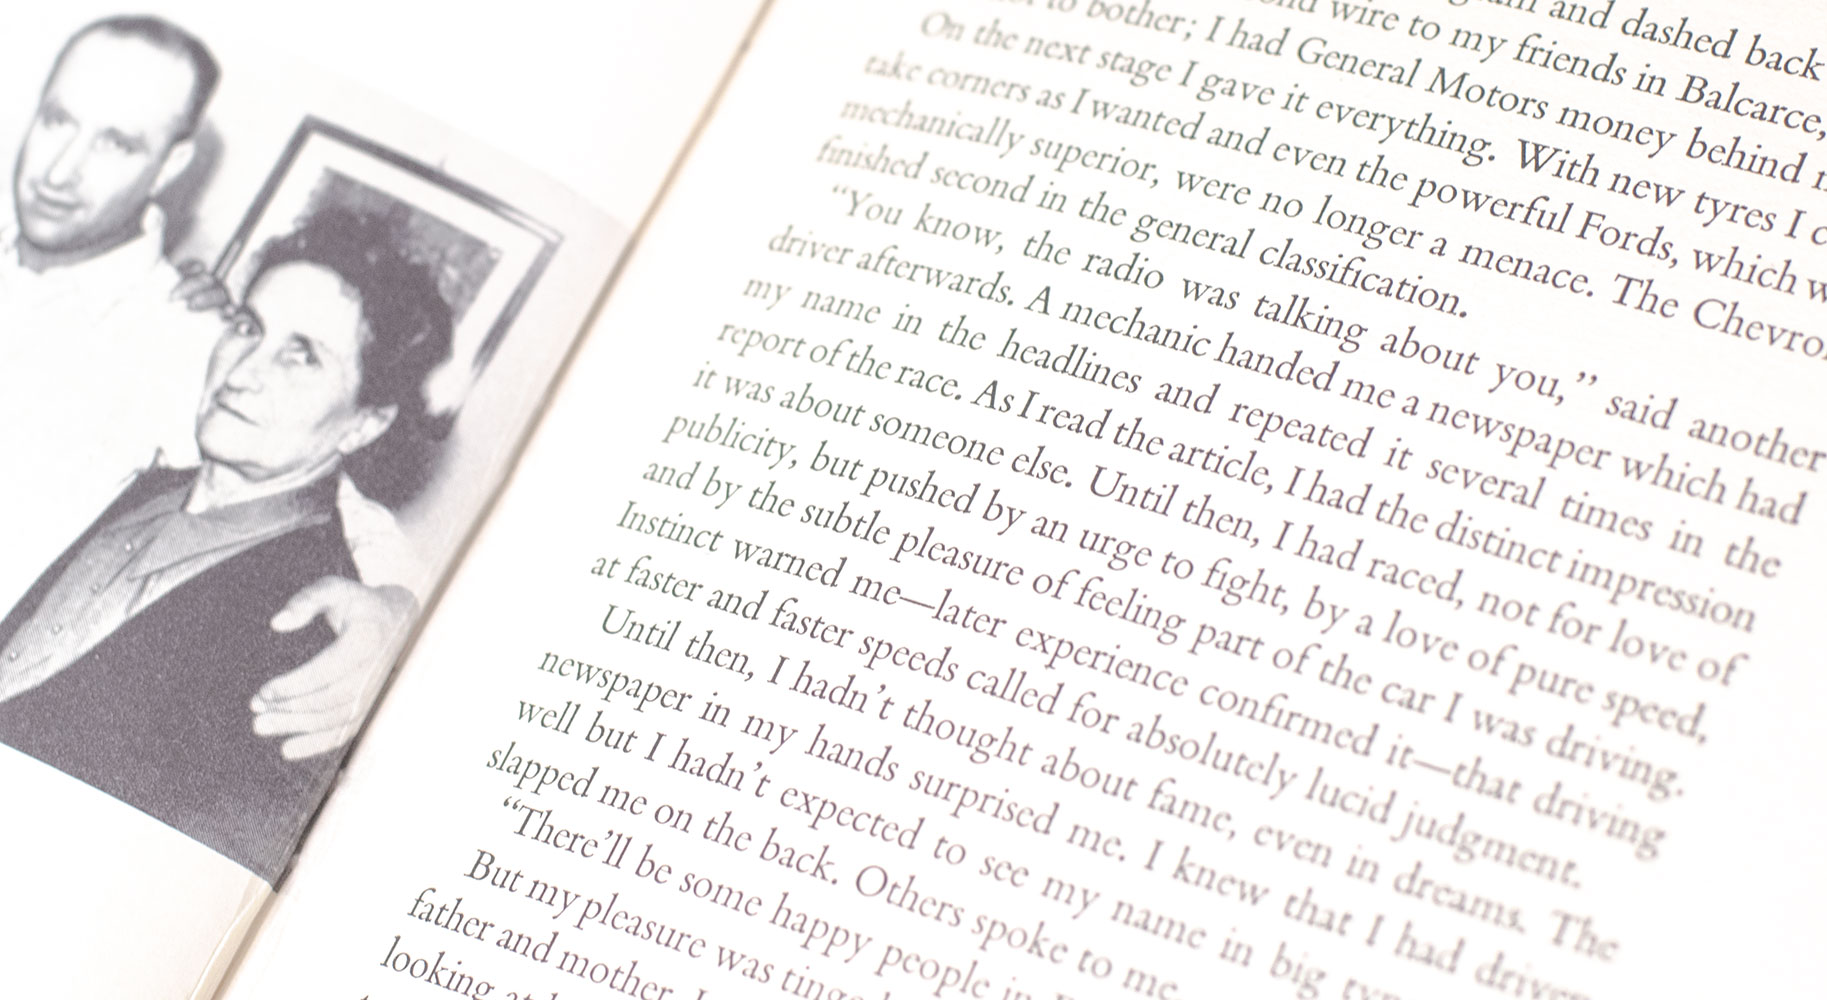 and dashed back
wire to my friends in Balcarce,
to bother; I had General Motors money behind
On the next stage I gave it everything. With new tyres I
take corners as I wanted and even the powerful Fords, which
mechanically superior, were no longer a menace. The
finished second in the general classification.
“You know, the radio was talking about you,” said another
driver afterwards. A mechanic handed me a newspaper which had
my name in the headlines and repeated it several times in the
report of the race. As I read the article, I had the distinct impression
it was about someone else. Until then, I had raced, not for love of
publicity, but pushed by an urge to fight, by a love of pure speed,
and by the subtle pleasure of feeling part of the car I was driving.
Instinct warned me—later experience confirmed it—that driving
at faster and faster speeds called for absolutely lucid judgment.
Until then, I hadn’t thought about fame, even in dreams. The
newspaper in my hands surprised me. I knew that I had driven
well but I hadn’t expected to see my name in big
slapped me on the back. Others spoke to me.
“There’ll be some happy people in
But my pleasure was
father and mother.
looking